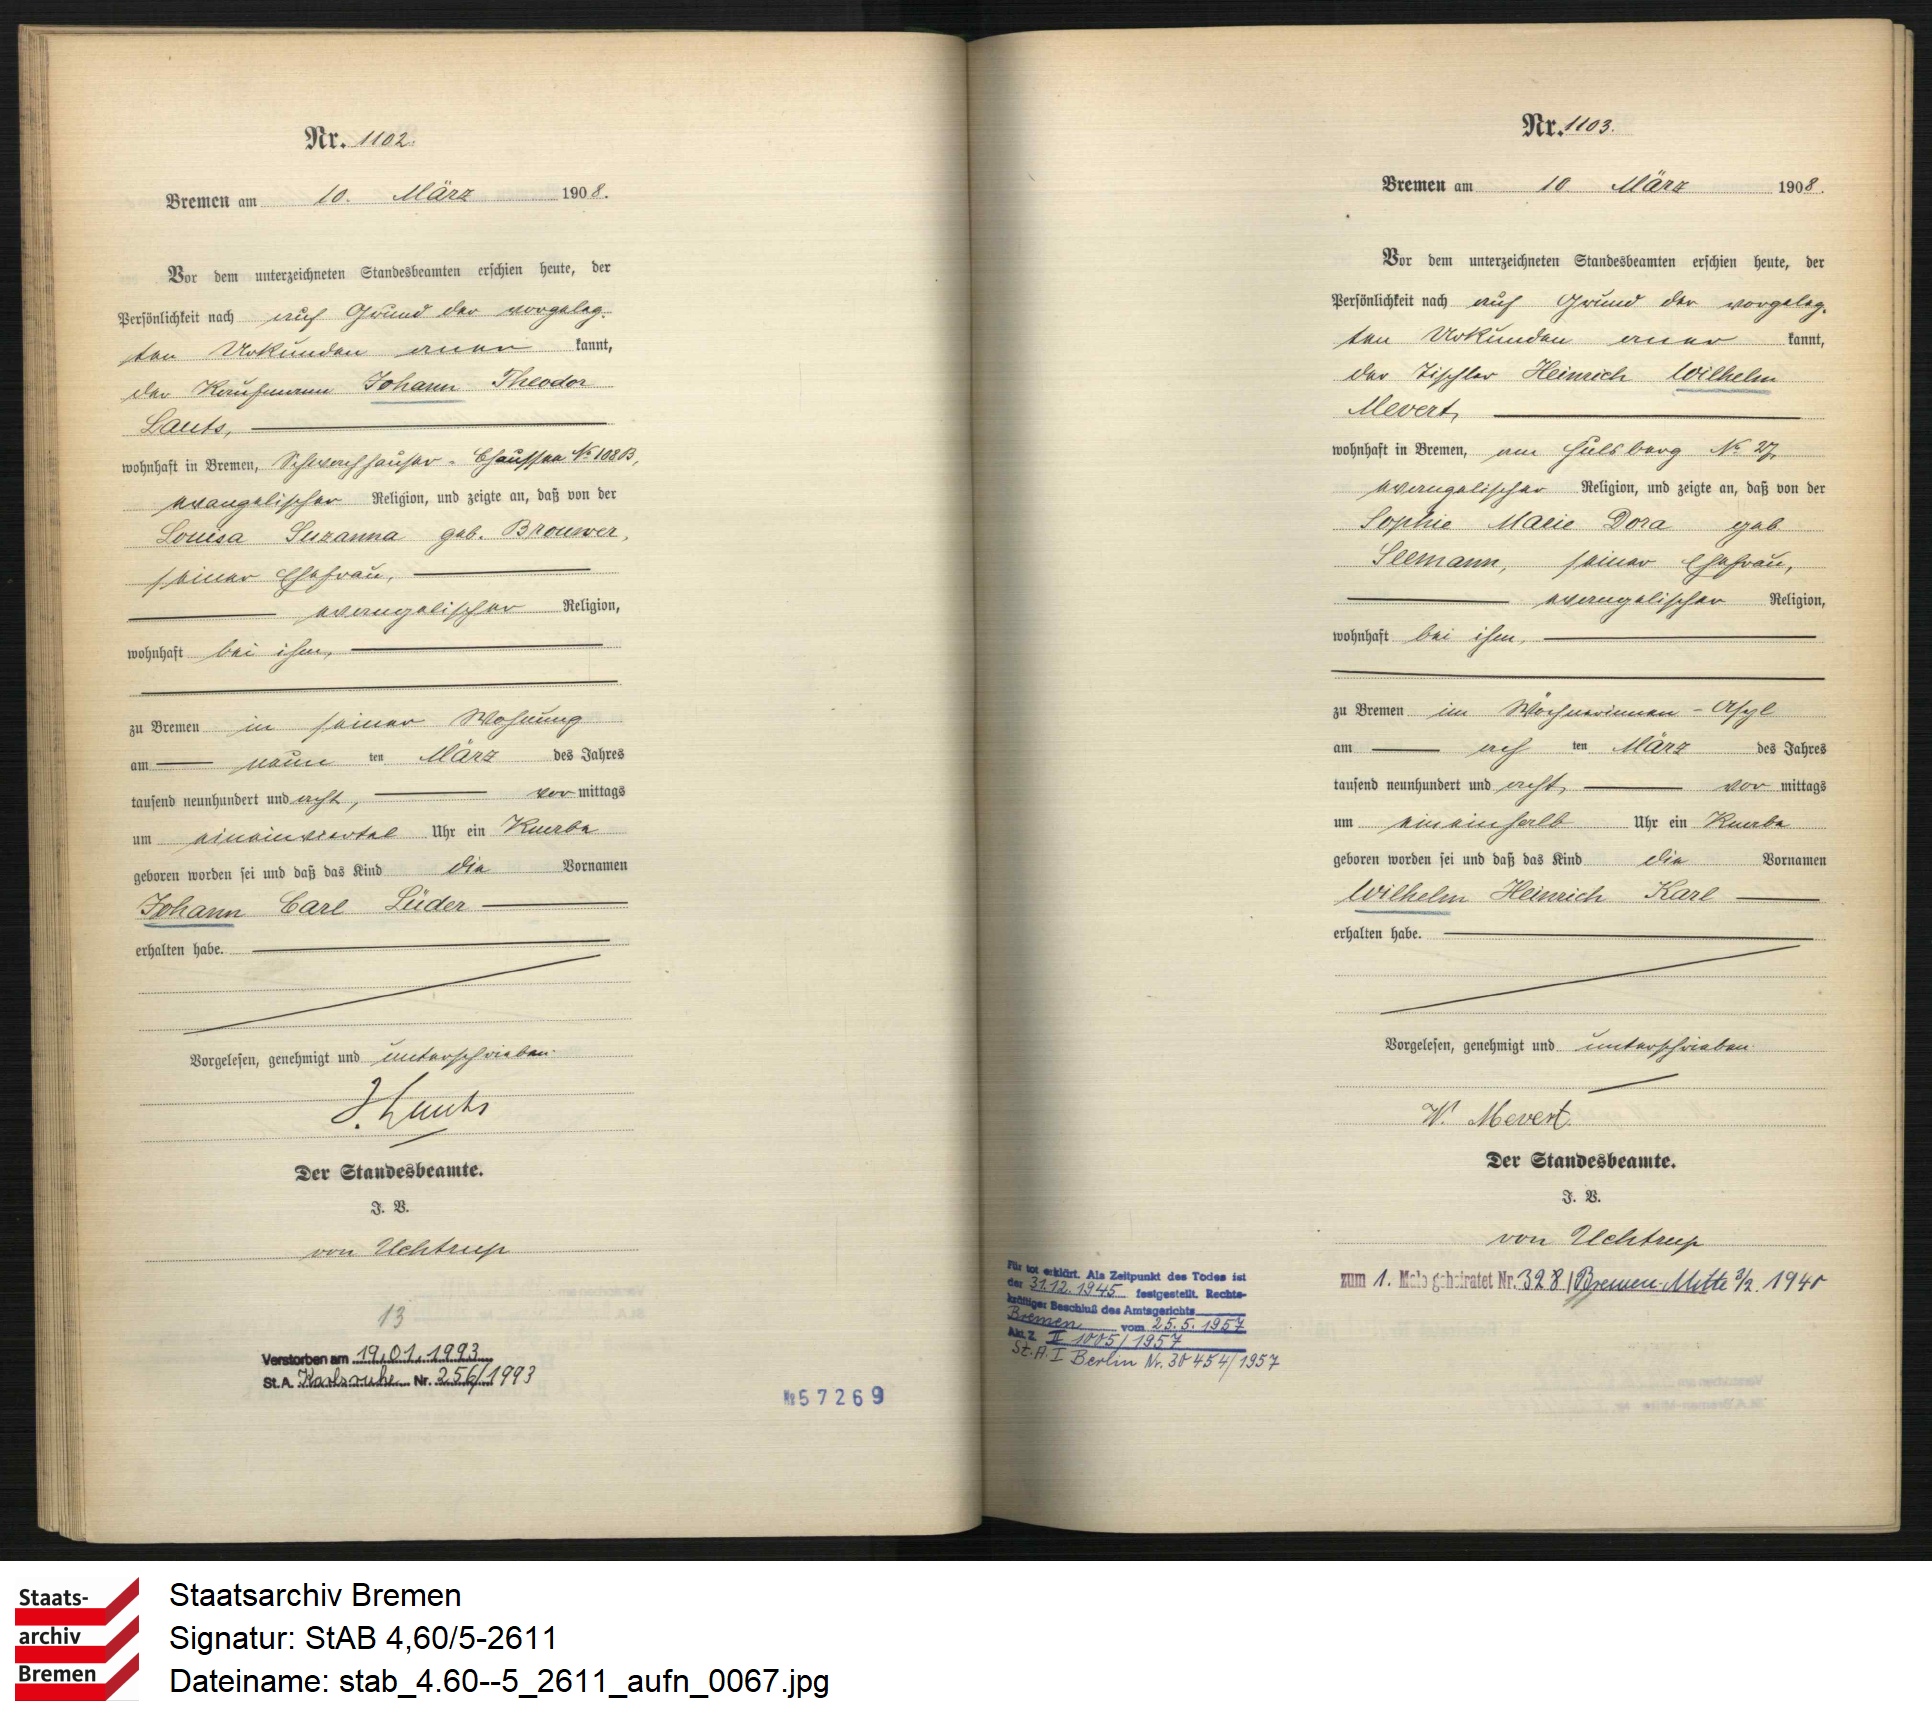 Nr. 1102.
Bremen am 10. März 1908.
Vor dem unterzeichneten Standesbeamten erschien heute, der
Persönlichkeit nach auf Grund der vorgeleg-
ten Urkunden aner kannt,
der Kaufmann Johann Theodor
Lauts,
wohnhaft in Bremen, Schwachhauser-Chaussee No 108B,
evangelischer Religion, und zeigte an, daß von der
Louisa Suzanna geb. Brouwer,
seiner Ehefrau,
evangelischer Religion,
wohnhaft bei ihm,
zu Bremen in seiner Wohnung
am neun ten März des Jahres
tausend neunhundert und acht, vor mittags
um eineinviertel Uhr ein Knabe
geboren worden sei und daß das Kind die Vornamen
Johann Carl Lüder
erhalten habe.
Vorgelesen, genehmigt und unterschrieben.
J. Lauts
Der Standesbeamte.
J. V.
von Uchtrup
13
Verstorben am 19.01.1993
St.A. Karlsruhe Nr. 256/1993
№ 57269
Nr. 1103.
Bremen am 10 März 1908.
Vor dem unterzeichneten Standesbeamten erschien heute, der
Persönlichkeit nach auf Grund der vorgeleg-
ten Urkunden aner kannt,
der Tischler Heinrich Wilhelm
Mevert,
wohnhaft in Bremen, am Hulsberg No 27,
evangelischer Religion, und zeigte an, daß von der
Sophie Marie Dora geb
Seemann, seiner Ehefrau,
evangelischer Religion,
wohnhaft bei ihm,
zu Bremen im Wöchnerinnen-Asyl
am ach ten März des Jahres
tausend neunhundert und acht, vor mittags
um eineinhalb Uhr ein Knabe
geboren worden sei und daß das Kind die Vornamen
Wilhelm Heinrich Karl
erhalten habe.
Vorgelesen, genehmigt und unterschrieben.
W. Mevert.
Der Standesbeamte.
J. V.
von Uchtrup
zum 1. Male geheiratet Nr. 328 / Bremen-Mitte 3/2. 1940
Für tot erklärt. Als Zeitpunkt des Todes ist
der 31.12.1945 festgestellt. Rechts-
kräftiger Beschluß des Amtsgerichts
Bremen vom 25.5.1957
Akt. Z. II 1005/1957
St. A. I Berlin Nr. 30454/1957
Staats-
archiv
Bremen
Staatsarchiv Bremen
Signatur: StAB 4,60/5-2611
Dateiname: stab_4.60--5_2611_aufn_0067.jpg